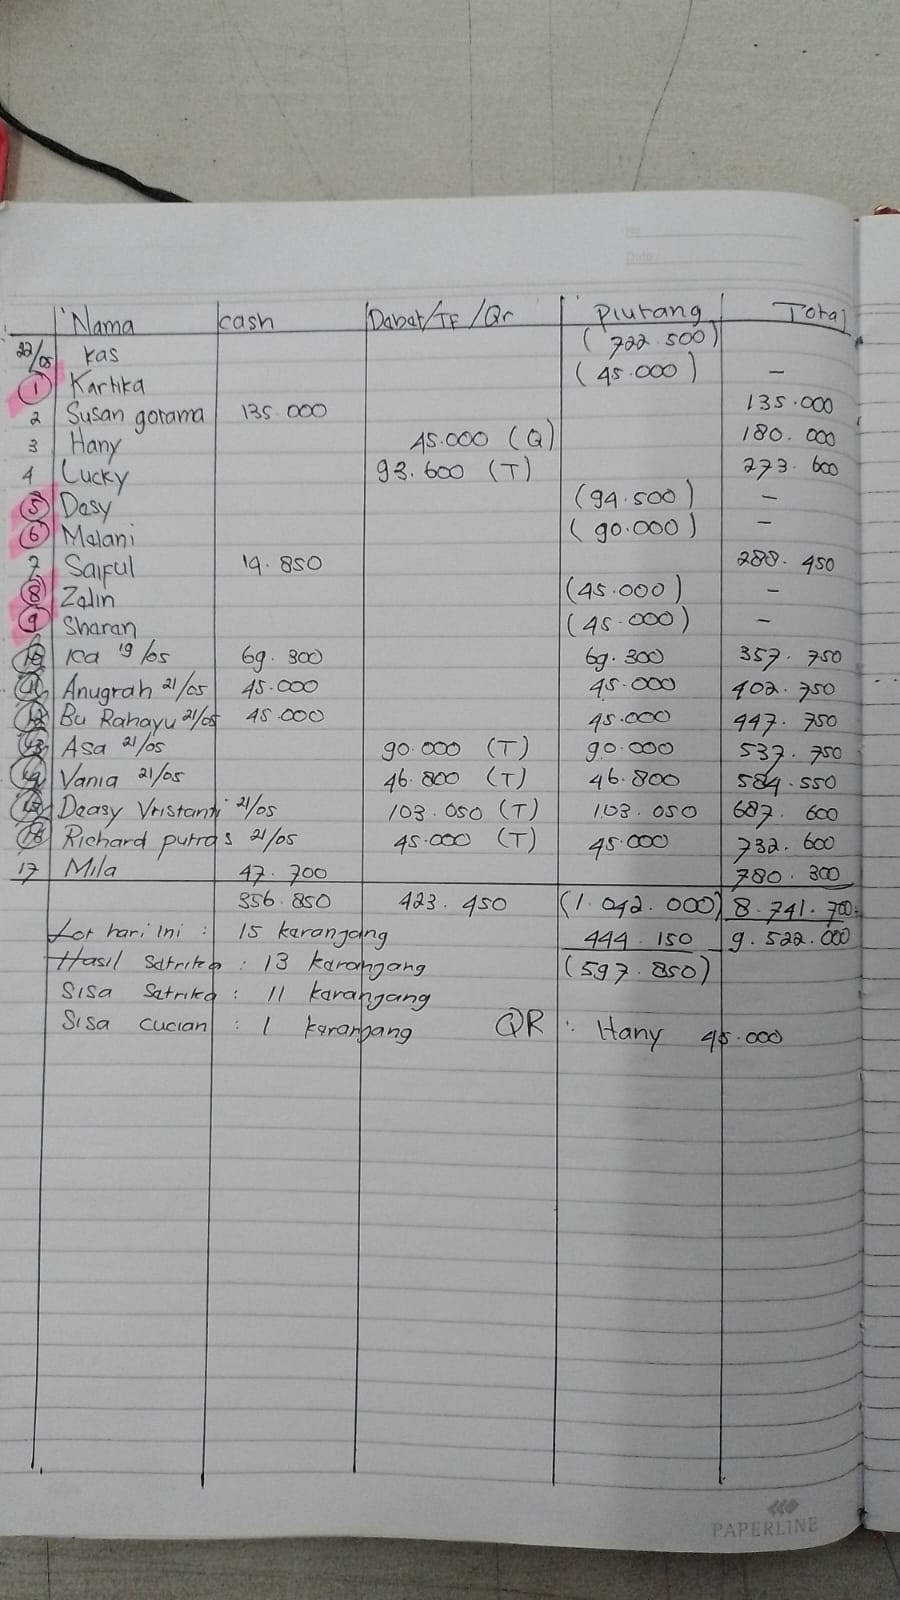 No
Date
Nama cash Dabat/TF/Qr Piutang Total
22/05 kas (722.500)
1 Kartika (45.000) –
2 Susan gorama 135.000 135.000
3 Hany 45.000 (Q) 180.000
4 Lucky 93.600 (T) 273.600
5 Dasy (94.500) –
6 Malani (90.000) –
7 Saiful 14.850 288.450
8 Zalin (45.000) –
9 Sharan (45.000) –
10 Ica 19/05 69.300 69.300 357.750
11 Anugrah 21/05 45.000 45.000 402.750
12 Bu Rahayu 21/05 45.000 45.000 447.750
13 Asa 21/05 90.000 (T) 90.000 537.750
14 Vania 21/05 46.800 (T) 46.800 584.550
15 Deasy Vristanti 21/05 103.050 (T) 103.050 687.600
16 Richard putras 21/05 45.000 (T) 45.000 732.600
17 Mila 47.700 780.300
356.850 423.450 (1.042.000) 8.741.700
hari ini : 15 karangang 444.150 9.522.000
Hasil Satrika : 13 karangang (597.850)
Sisa Satrika : 11 karangang
Sisa cucian : 1 karangang QR : Hany 45.000
PAPERLINE